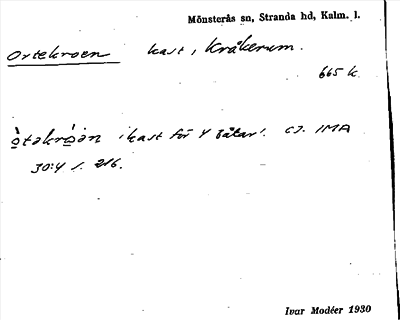 Mönsterås sn, Stranda hd, Kalm. l.
Ortekroen kast, Kråkerum.
665 k
òtəkròən 'kast för 4 båtar'. cf. IMA
30:4 s. 216.
Ivar Modéer 1930